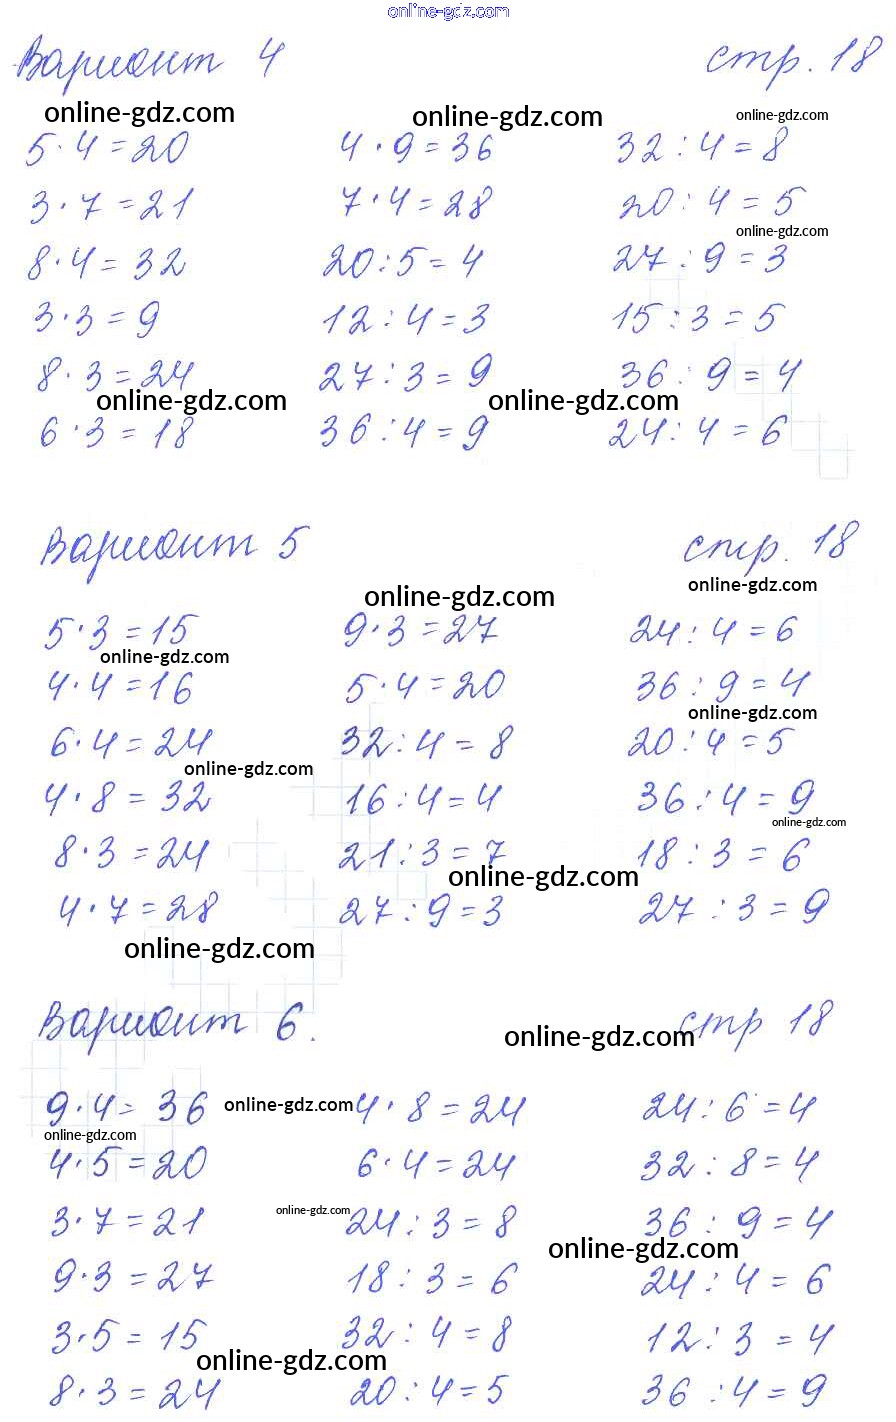 online-gdz.com
Вариант 4 стр. 18
online-gdz.com online-gdz.com online-gdz.com
5·4=20 4·9=36 32:4=8
3·7=21 7·4=28 20:4=5
online-gdz.com
8·4=32 20:5=4 27:9=3
3·3=9 12:4=3 15:3=5
8·3=24 27:3=9 36:9=4
online-gdz.com online-gdz.com
6·3=18 36:4=9 24:4=6
Вариант 5 стр. 18
online-gdz.com online-gdz.com
5·3=15 9·3=27 24:4=6
online-gdz.com
4·4=16 5·4=20 36:9=4
online-gdz.com
6·4=24 32:4=8 20:4=5
online-gdz.com
4·8=32 16:4=4 36:4=9
online-gdz.com
8·3=24 21:3=7 18:3=6
online-gdz.com
4·7=28 27:9=3 27:3=9
online-gdz.com
Вариант 6. стр 18
online-gdz.com
9·4=36 4·8=24 24:6=4
online-gdz.com
online-gdz.com
4·5=20 6·4=24 32:8=4
online-gdz.com
3·7=21 24:3=8 36:9=4
online-gdz.com
9·3=27 18:3=6 24:4=6
3·5=15 32:4=8 12:3=4
online-gdz.com
8·3=24 20:4=5 36:4=9